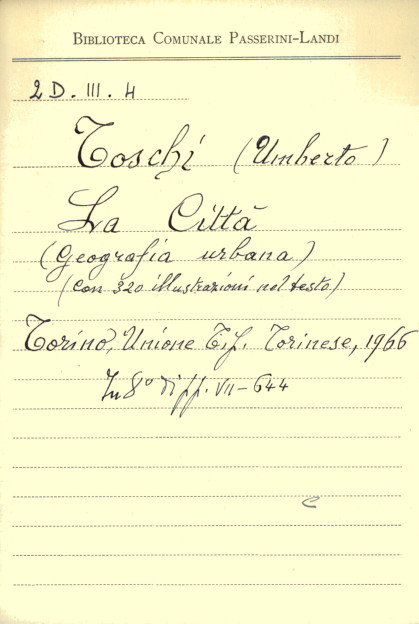 BIBLIOTECA COMUNALE PASSERINI-LANDI
2 D. III. 4
Toschi (Umberto)
La Città
(Geografia urbana)
(con 320 illustrazioni nel testo)
Torino, Unione Tip. Torinese, 1966
In 8° di pp. VII-644
C